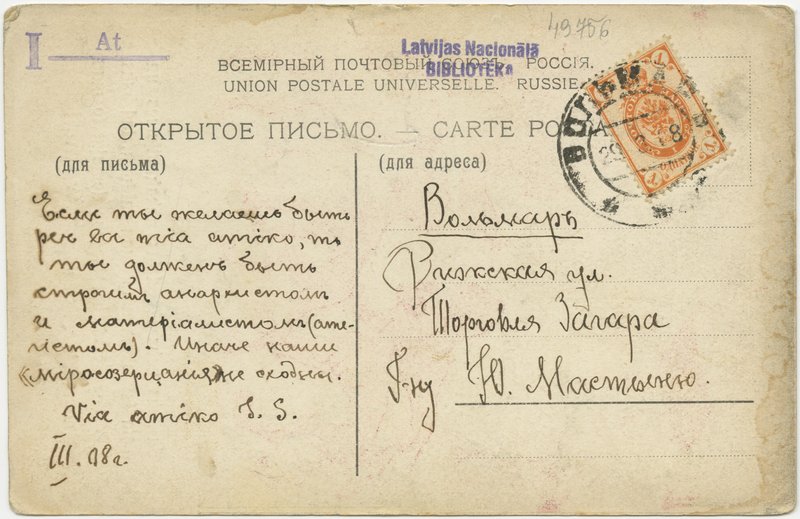 49756
I At
Latvijas Nacionālā
BIBLIOTĒKA
ВСЕМІРНЫЙ ПОЧТОВЫЙ СОЮЗЪ. РОССІЯ.
UNION POSTALE UNIVERSELLE. RUSSIE.
ОТКРЫТОЕ ПИСЬМО. — CARTE POSTALE
(для письма)
Если ты желаешь быть
via amiko, то
ты долженъ быть
строгимъ анархистомъ
и матеріалистомъ (ате-
истомъ). Иначе наши
«міросозерцанія» не сходны.
Via amiko S. S.
III. 18 г.
(для адреса)
Вольмаръ
Рижская ул.
Торговля Загара
Г-ну Ю. Мастыню.
ВОЛЬМАРЪ
29
18